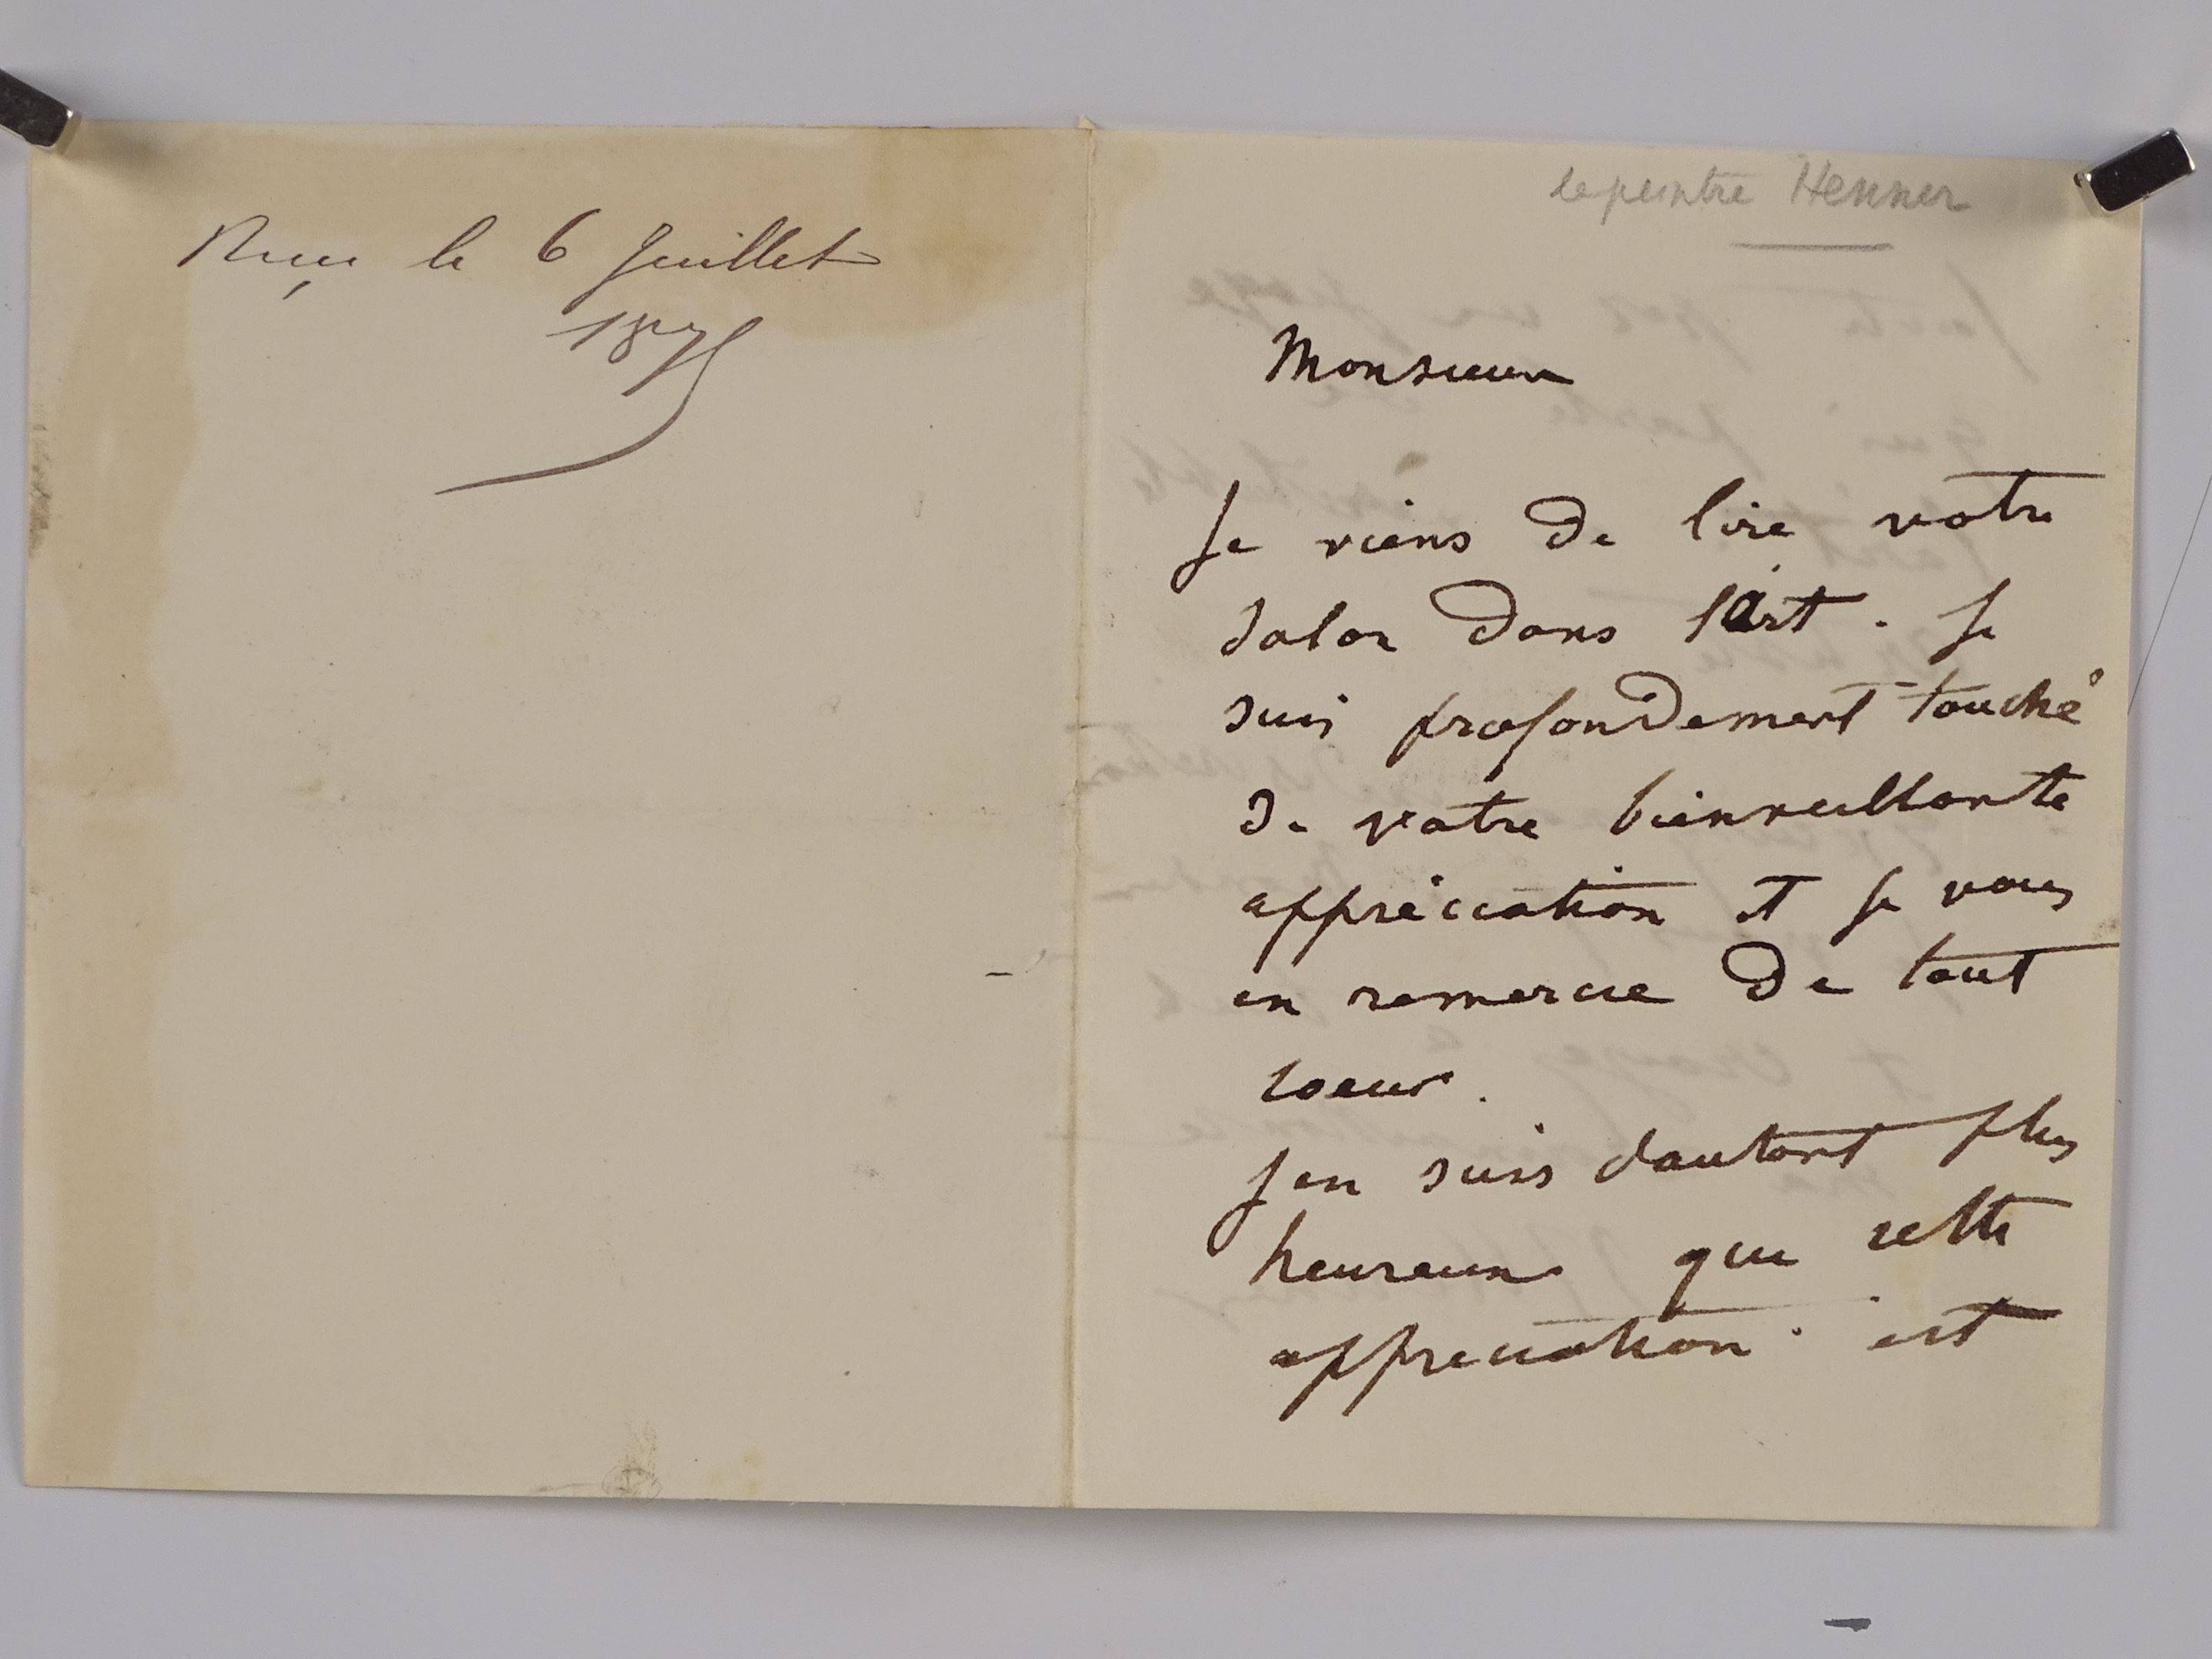 Reçu le 6 Juillet
187
le peintre Henner
Monsieur
Je viens de lire votre
salon dans l'Art. Je
suis profondement touché
de votre bienveillante
appréciation et je vous
en remercie de tout
coeur.
J en suis dautant plus
heureux que cette
appreciation est